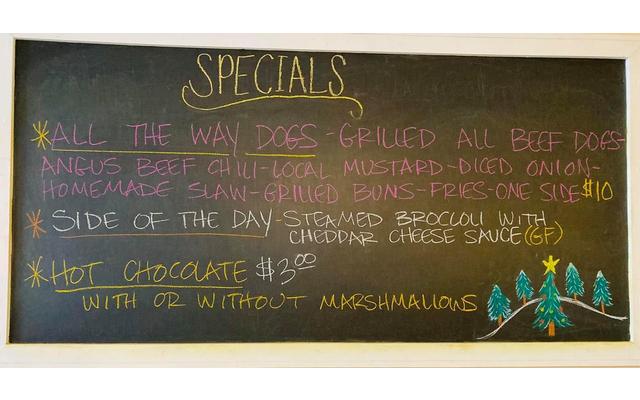 SPECIALS
*ALL THE WAY DOGS-GRILLED ALL BEEF DOGS-
ANGUS BEEF CHILI-LOCAL MUSTARD-DICED ONION-
HOMEMADE SLAW-GRILLED BUNS-FRIES-ONE SIDE $10
* SIDE OF THE DAY-STEAMED BROCCOLI WITH
CHEDDAR CHEESE SAUCE (GF)
*HOT CHOCOLATE $3.00
WITH OR WITHOUT MARSHMALLOWS